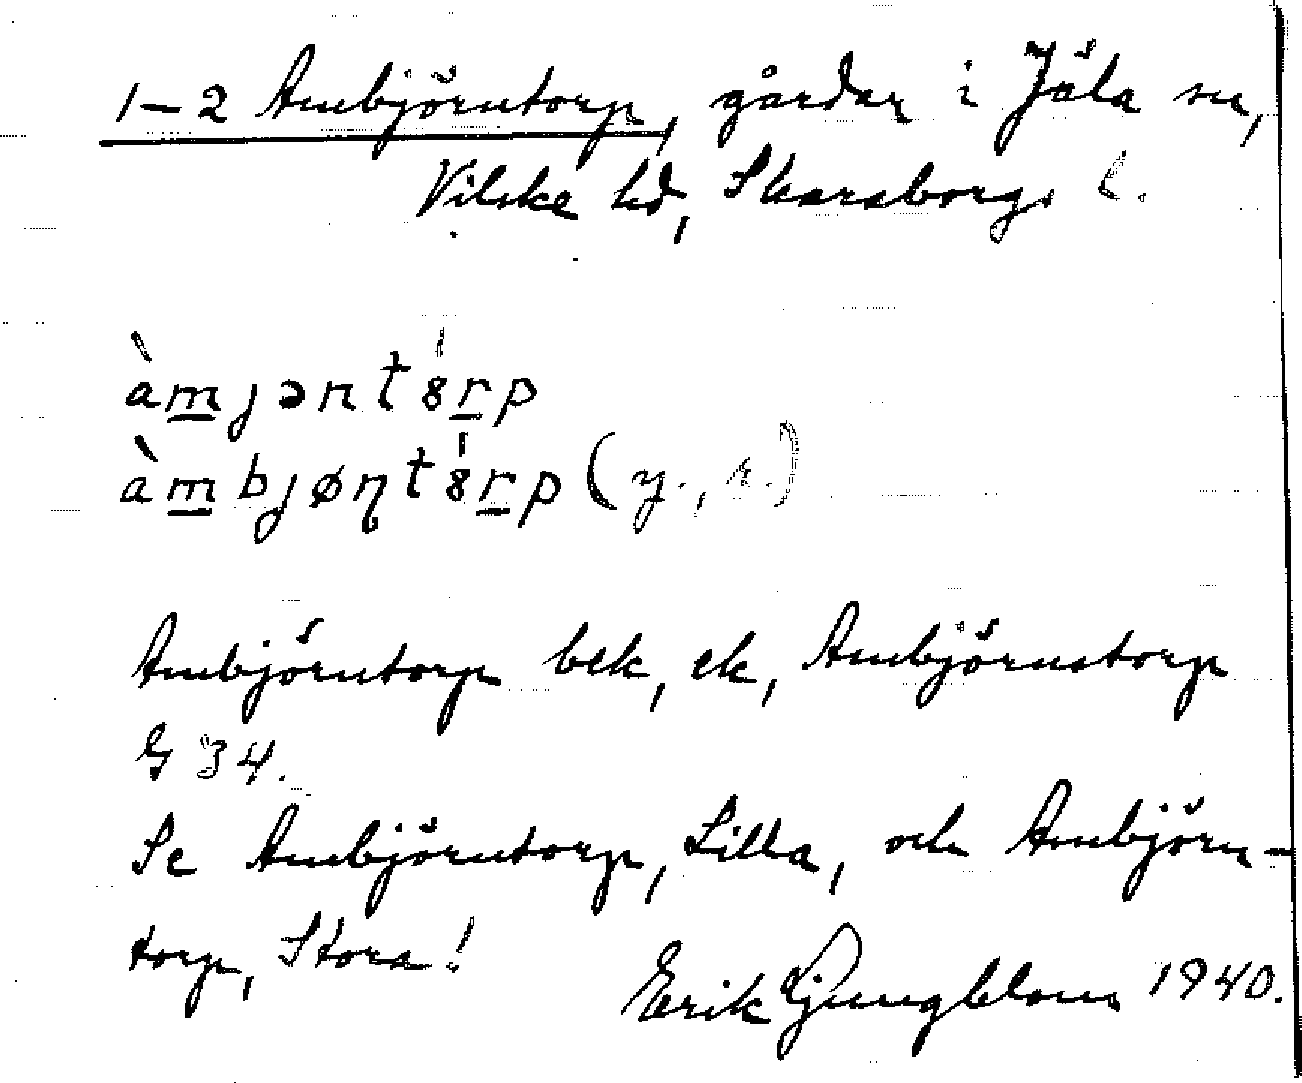 1–2 Ambjörntorp, gårdar i Jäla sn,
Vilske hd, Skaraborgs l.
àmjəntȣ́rp
àmbjøɳtȣ́rp (y., r.)
Ambjörntorp bek, ek, Ambjörnstorp
G 34.
Se Ambjörntorp, Lilla, och Ambjörn-
torp, Stora!
Erik Ljungblom 1940.